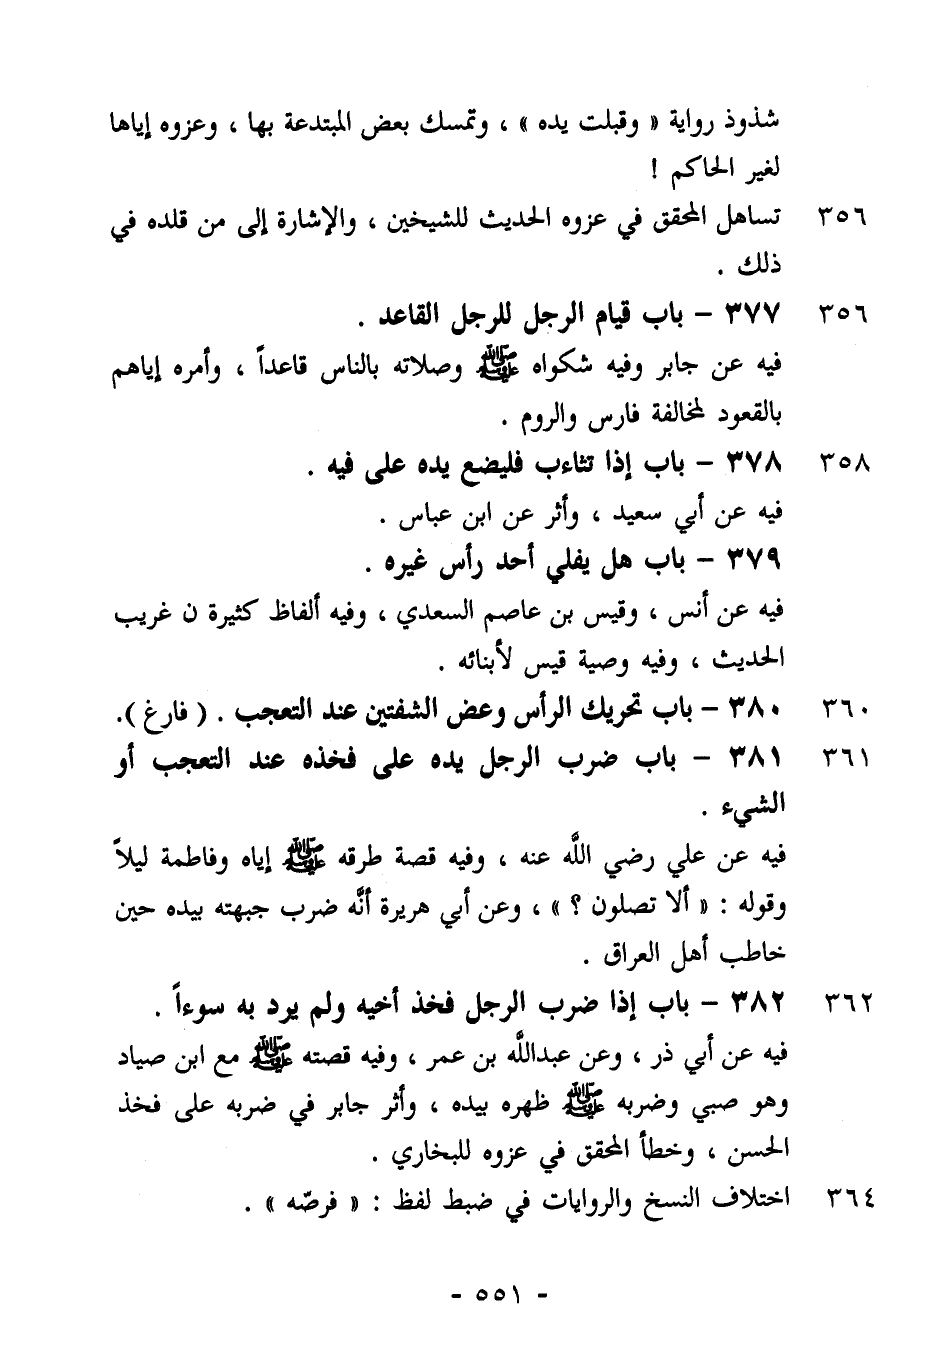 شذوذ رواية « وقبلت يده » ، وتمسك بعض المبتدعة بها ، وعزوه إياها
لغير الحاكم !
٣٥٦ تساهل المحقق في عزوه الحديث للشيخين ، والإشارة إلى من قلده في
ذلك .
٣٥٦ ٣٧٧ – باب قيام الرجل للرجل القاعد .
فيه عن جابر وفيه شكواه ﷺ وصلاته بالناس قاعداً ، وأمره إياهم
بالقعود لمخالفة فارس والروم .
٣٥٨ ٣٧٨ – باب إذا تثاءب فليضع يده على فيه .
فيه عن أبي سعيد ، وأثر عن ابن عباس .
٣٧٩ – باب هل يفلي أحد رأس غيره .
فيه عن أنس ، وقيس بن عاصم السعدي ، وفيه ألفاظ كثيرة ن غريب
الحديث ، وفيه وصية قيس لأبنائه .
٣٦٠ ٣٨٠ – باب تحريك الرأس وعض الشفتين عند التعجب . ( فارغ ).
٣٦١ ٣٨١ – باب ضرب الرجل يده على فخذه عند التعجب أو
الشيء .
فيه عن علي رضي اللَّه عنه ، وفيه قصة طرقه ﷺ إياه وفاطمة ليلاً
وقوله : « ألا تصلون ؟ » ، وعن أبي هريرة أنَّه ضرب جبهته بيده حين
خاطب أهل العراق .
٣٦٢ ٣٨٢ – باب إذا ضرب الرجل فخذ أخيه ولم يرد به سوءاً .
فيه عن أبي ذر ، وعن عبداللَّه بن عمر ، وفيه قصته ﷺ مع ابن صياد
وهو صبي وضربه ﷺ ظهره بيده ، وأثر جابر في ضربه على فخذ
الحسن ، وخطأ المحقق في عزوه للبخاري .
٣٦٤ اختلاف النسخ والروايات في ضبط لفظ : « فرضّه » .
- ٥٥١ -